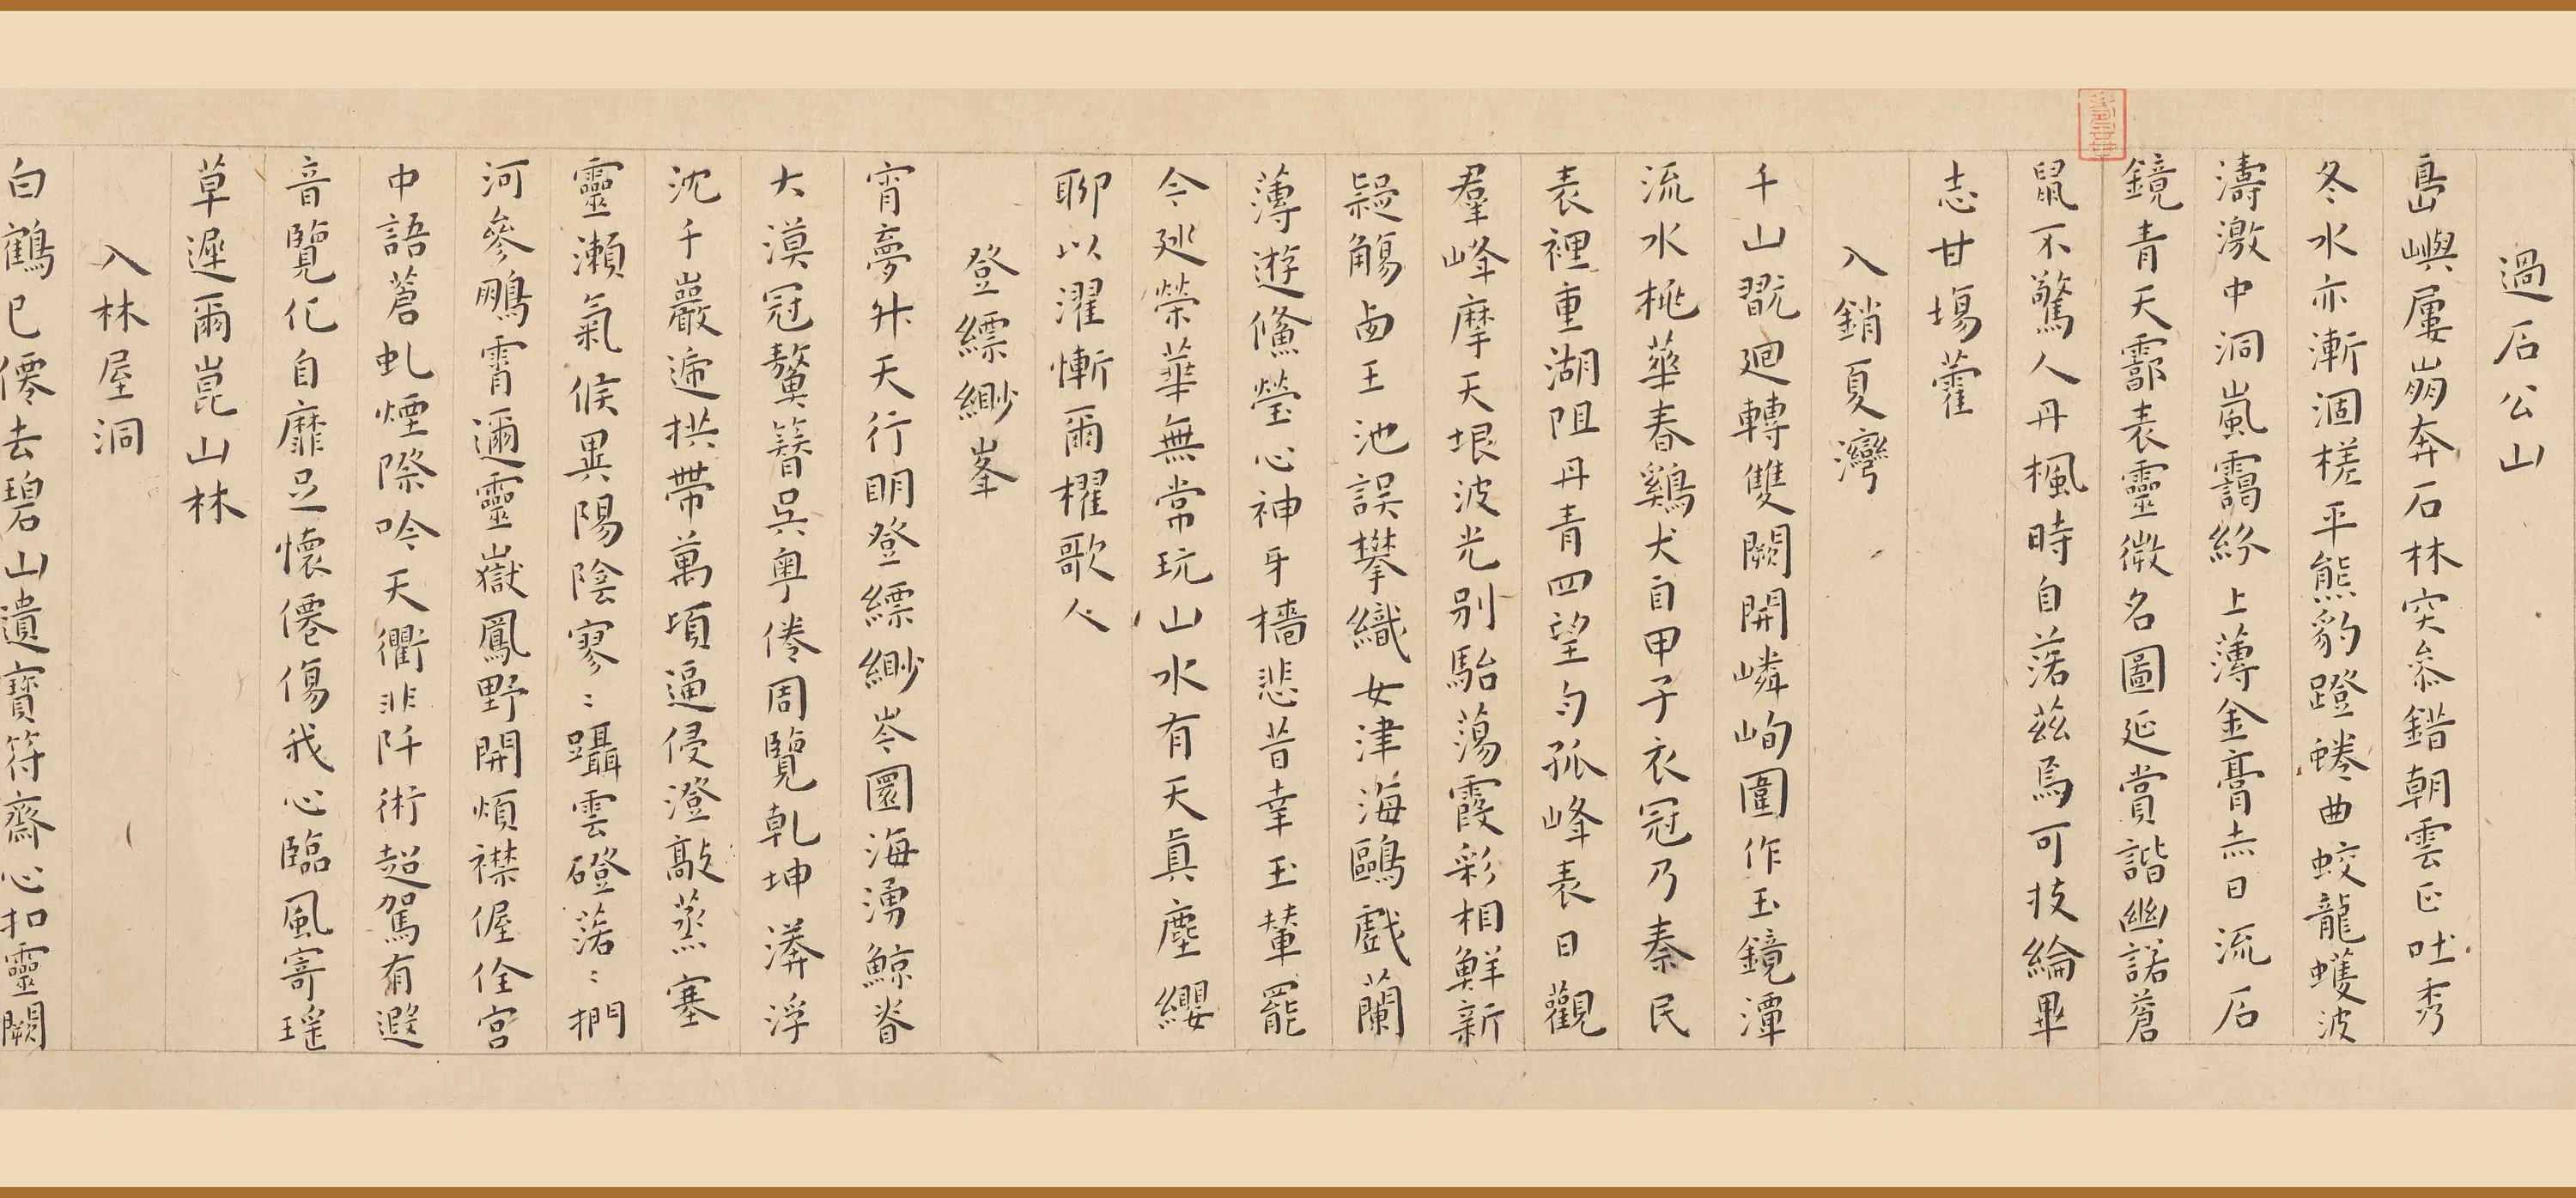 過石公山
島嶼屢崩奔石林突參錯朝雲正吐秀
冬水亦漸涸槎平熊豹蹬蜷曲蛟龍蠖波
濤激中洞嵐靄紛上薄金膏赤日流石
鏡青天霩表靈徵名圖延賞諧幽諾蒼
鼠不驚人丹楓時自落茲焉可投綸畢
志甘場藿
入銷夏灣
千山翫迴轉雙闕開嶙峋圍作玉鏡潭
流水桃華春鷄犬自甲子衣冠乃秦民
表裡重湖阻丹青四望勻孤峰表日觀
羣峰摩天垠波光別駘蕩霞彩相鮮新
疑觴西王池誤攀織女津海鷗戲蘭
薄遊鯈瑩心神牙檣悲昔幸玉輦罷
今廵榮華無常玩山水有天真塵纓
聊以濯慚爾櫂歌人
登縹緲峯
宵夢升天行明登縹緲岑圜海湧鯨脊
大漠冠鼇簪吳粵倦周覽乾坤漭浮
沈千巖遞拱帶萬頃逼侵澄敲蒸塞
靈瀨氣候異陽陰寥〻躡雲磴落〻捫
河參鵬霄邇靈嶽鳳野開煩襟偓佺宮
中語蒼虬煙際吟天衢非阡術超駕有遐
音覽化自靡足懷僊傷我心臨風寄瑤
草遲爾崑山林
入林屋洞
白鶴已僊去碧山遺寶符齋心扣靈闕